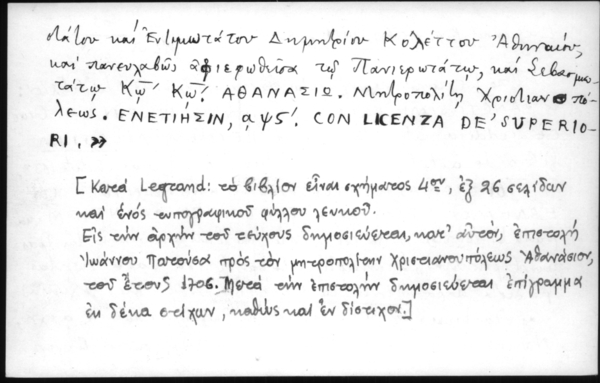 στάτου καὶ Ἐντιμωτάτου Δημητρίου Κολέττου Ἀθηναίου,
καὶ πανευλαβῶς ἀφιερωθεῖσα τῷ Πανιερωτάτῳ, καὶ Σεβασμιω-
τάτῳ Κῳ̅ Κῳ̅. ΑΘΑΝΑΣΙΩ. Μητροπολίτῃ Χριστιανοπό-
λεως. ΕΝΕΤΙΗΣΙΝ, αψς΄. CON LICENZA DE' SUPERIO-
RI. »
[Κατά Legrand: τὸ βιβλίον εἶναι σχήματος 4ου, ἐξ 26 σελίδων
καὶ ἑνός τυπογραφικοῦ φύλλου λευκοῦ.
Εἰς τὴν ἀρχὴν τοῦ τεύχους δημοσιεύεται, κατ' αὐτόν, ἐπιστολὴ
Ἰωάννου Πατούσα πρὸς τὸν μητροπολίτην Χριστιανουπόλεως Ἀθανάσιον,
τοῦ ἔτους 1706. Μετά τὴν ἐπιστολὴν δημοσιεύεται ἐπίγραμμα
ἐκ δέκα στίχων, καθὼς καὶ ἓν δίστιχον.]